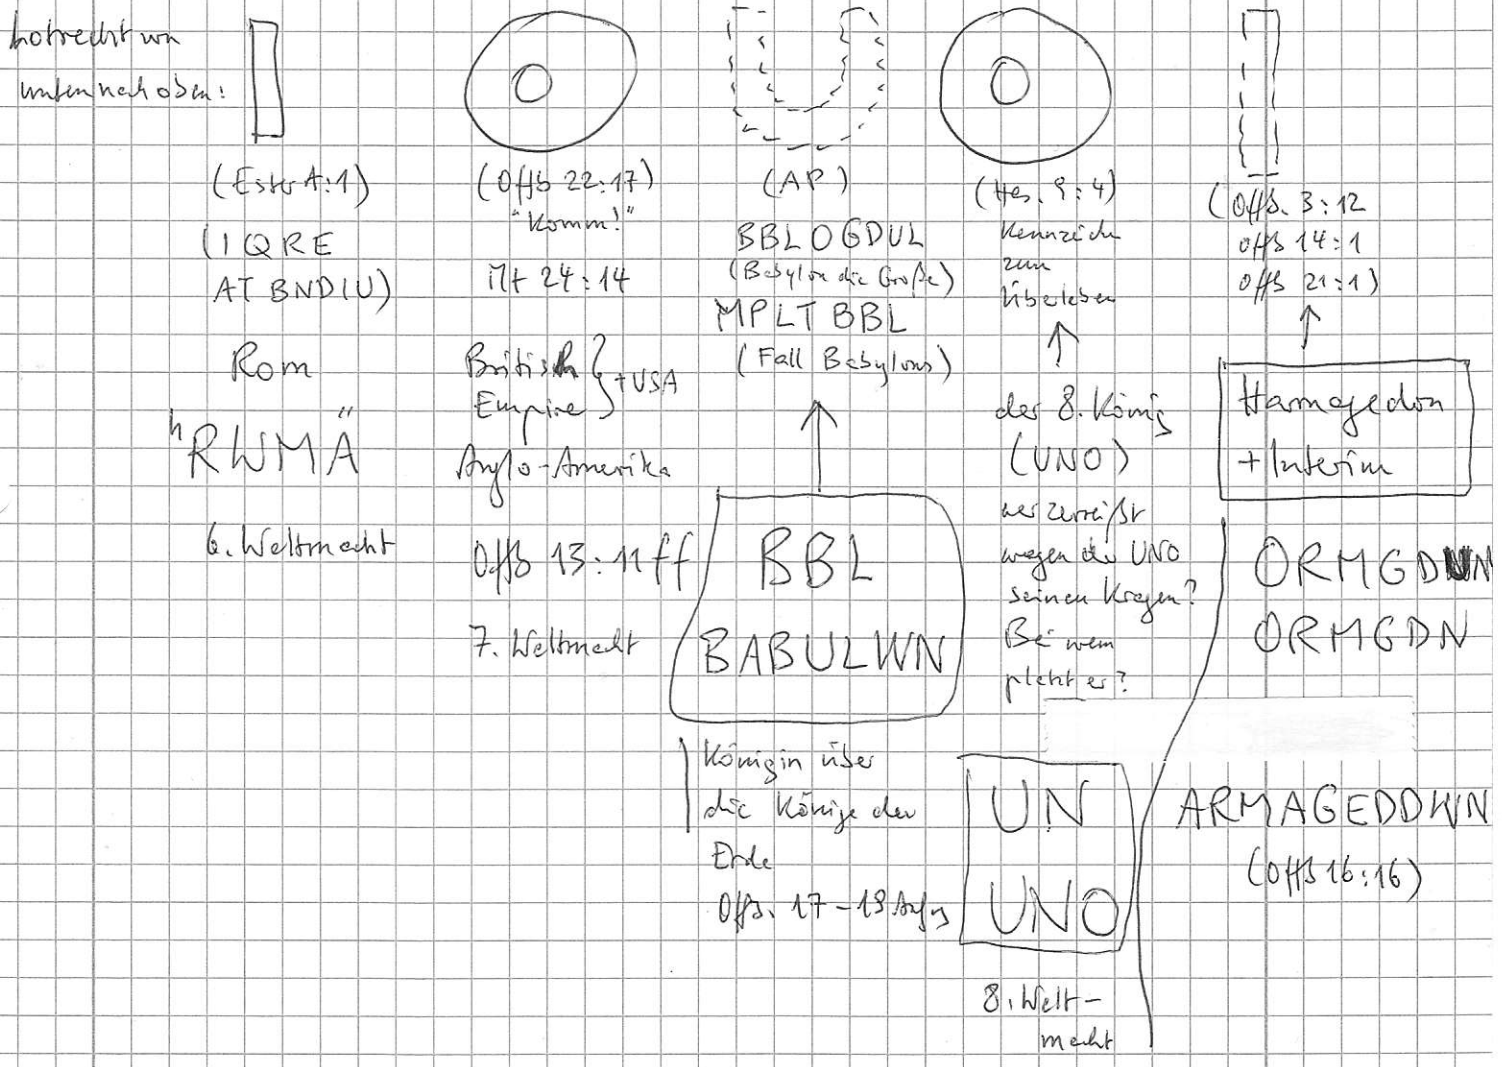 Lotrecht von
unten nach oben:
(Ester A:1)
(IQRE
AT BNDIU)
Rom
"RWMA"
6. Weltmacht
(Offb 22:17)
"Komm!"
Mt 24:14
British
Empire } + USA
Anglo-Amerika
Offb 13:11ff
7. Weltmacht
(AP)
BBLOGDUL
(Babylon die Große)
MPLT BBL
(Fall Babylons)
BBL
BABULWN
Königin über
die Könige der
Erde
Offb. 17-19 Anfg
(Hes. 9:4)
Kennzeichn
zum
Überleben
der 8. König
(UNO)
wer zerreißt
wegen der UNO
seinen Kragen?
Bei wem
platzt er?
UN
UNO
8. Welt-
macht
(Offb. 3:12
Offb 14:1
Offb 21:1)
Harmagedon
+ Interim
ORMGDUN
ORMGDN
ARMAGEDDWN
(Offb 16:16)